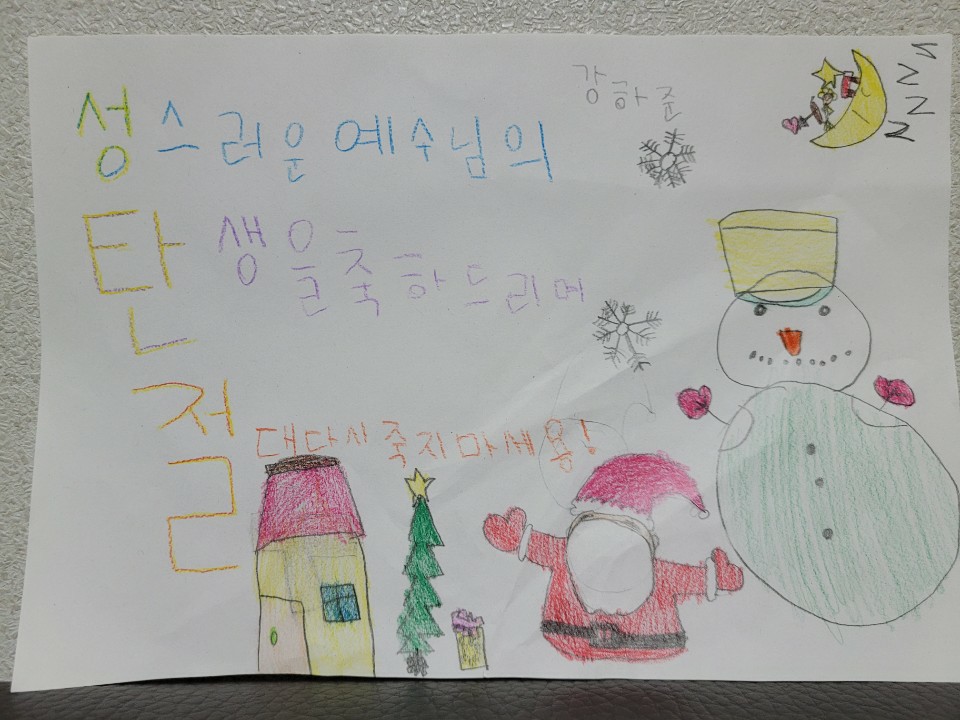 강하준
성스러운 예수님의
탄생을축하드리며
절대다시죽지마세용!
Z Z Z Z